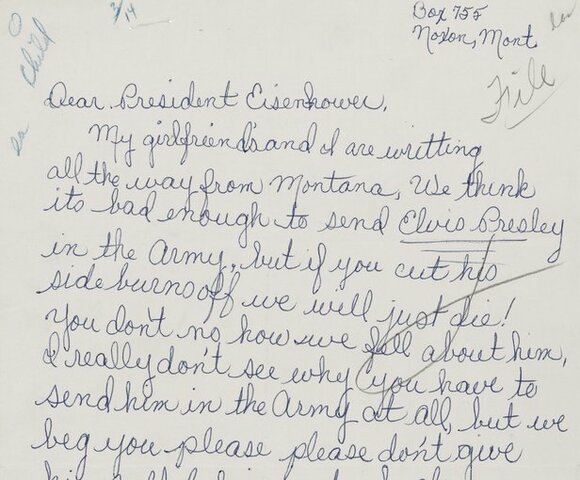 3/14
Child
Box 755
Noxon, Mont
File
Dear President Eisenhower,
My girlfriend's and I are writting
all the way from Montana, We think
its bad enough to send Elvis Presley
in the Army, but if you cut his
side burns off we will just die!
You don't no how we fell about him,
I really don't see why you have to
send him in the Army at all, but we
beg you please please don't give